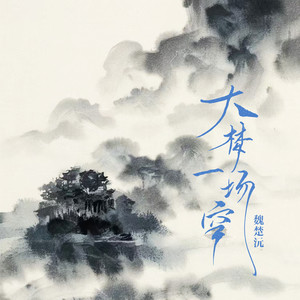 大梦一场空
魏楚沅